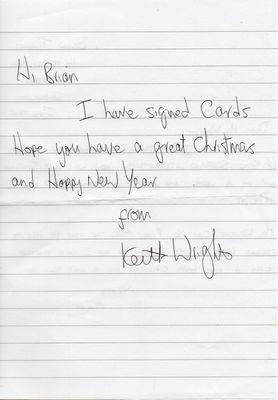 Hi Brian
I have signed Cards
Hope you have a great Christmas
and Happy New Year
from
Keith Wright